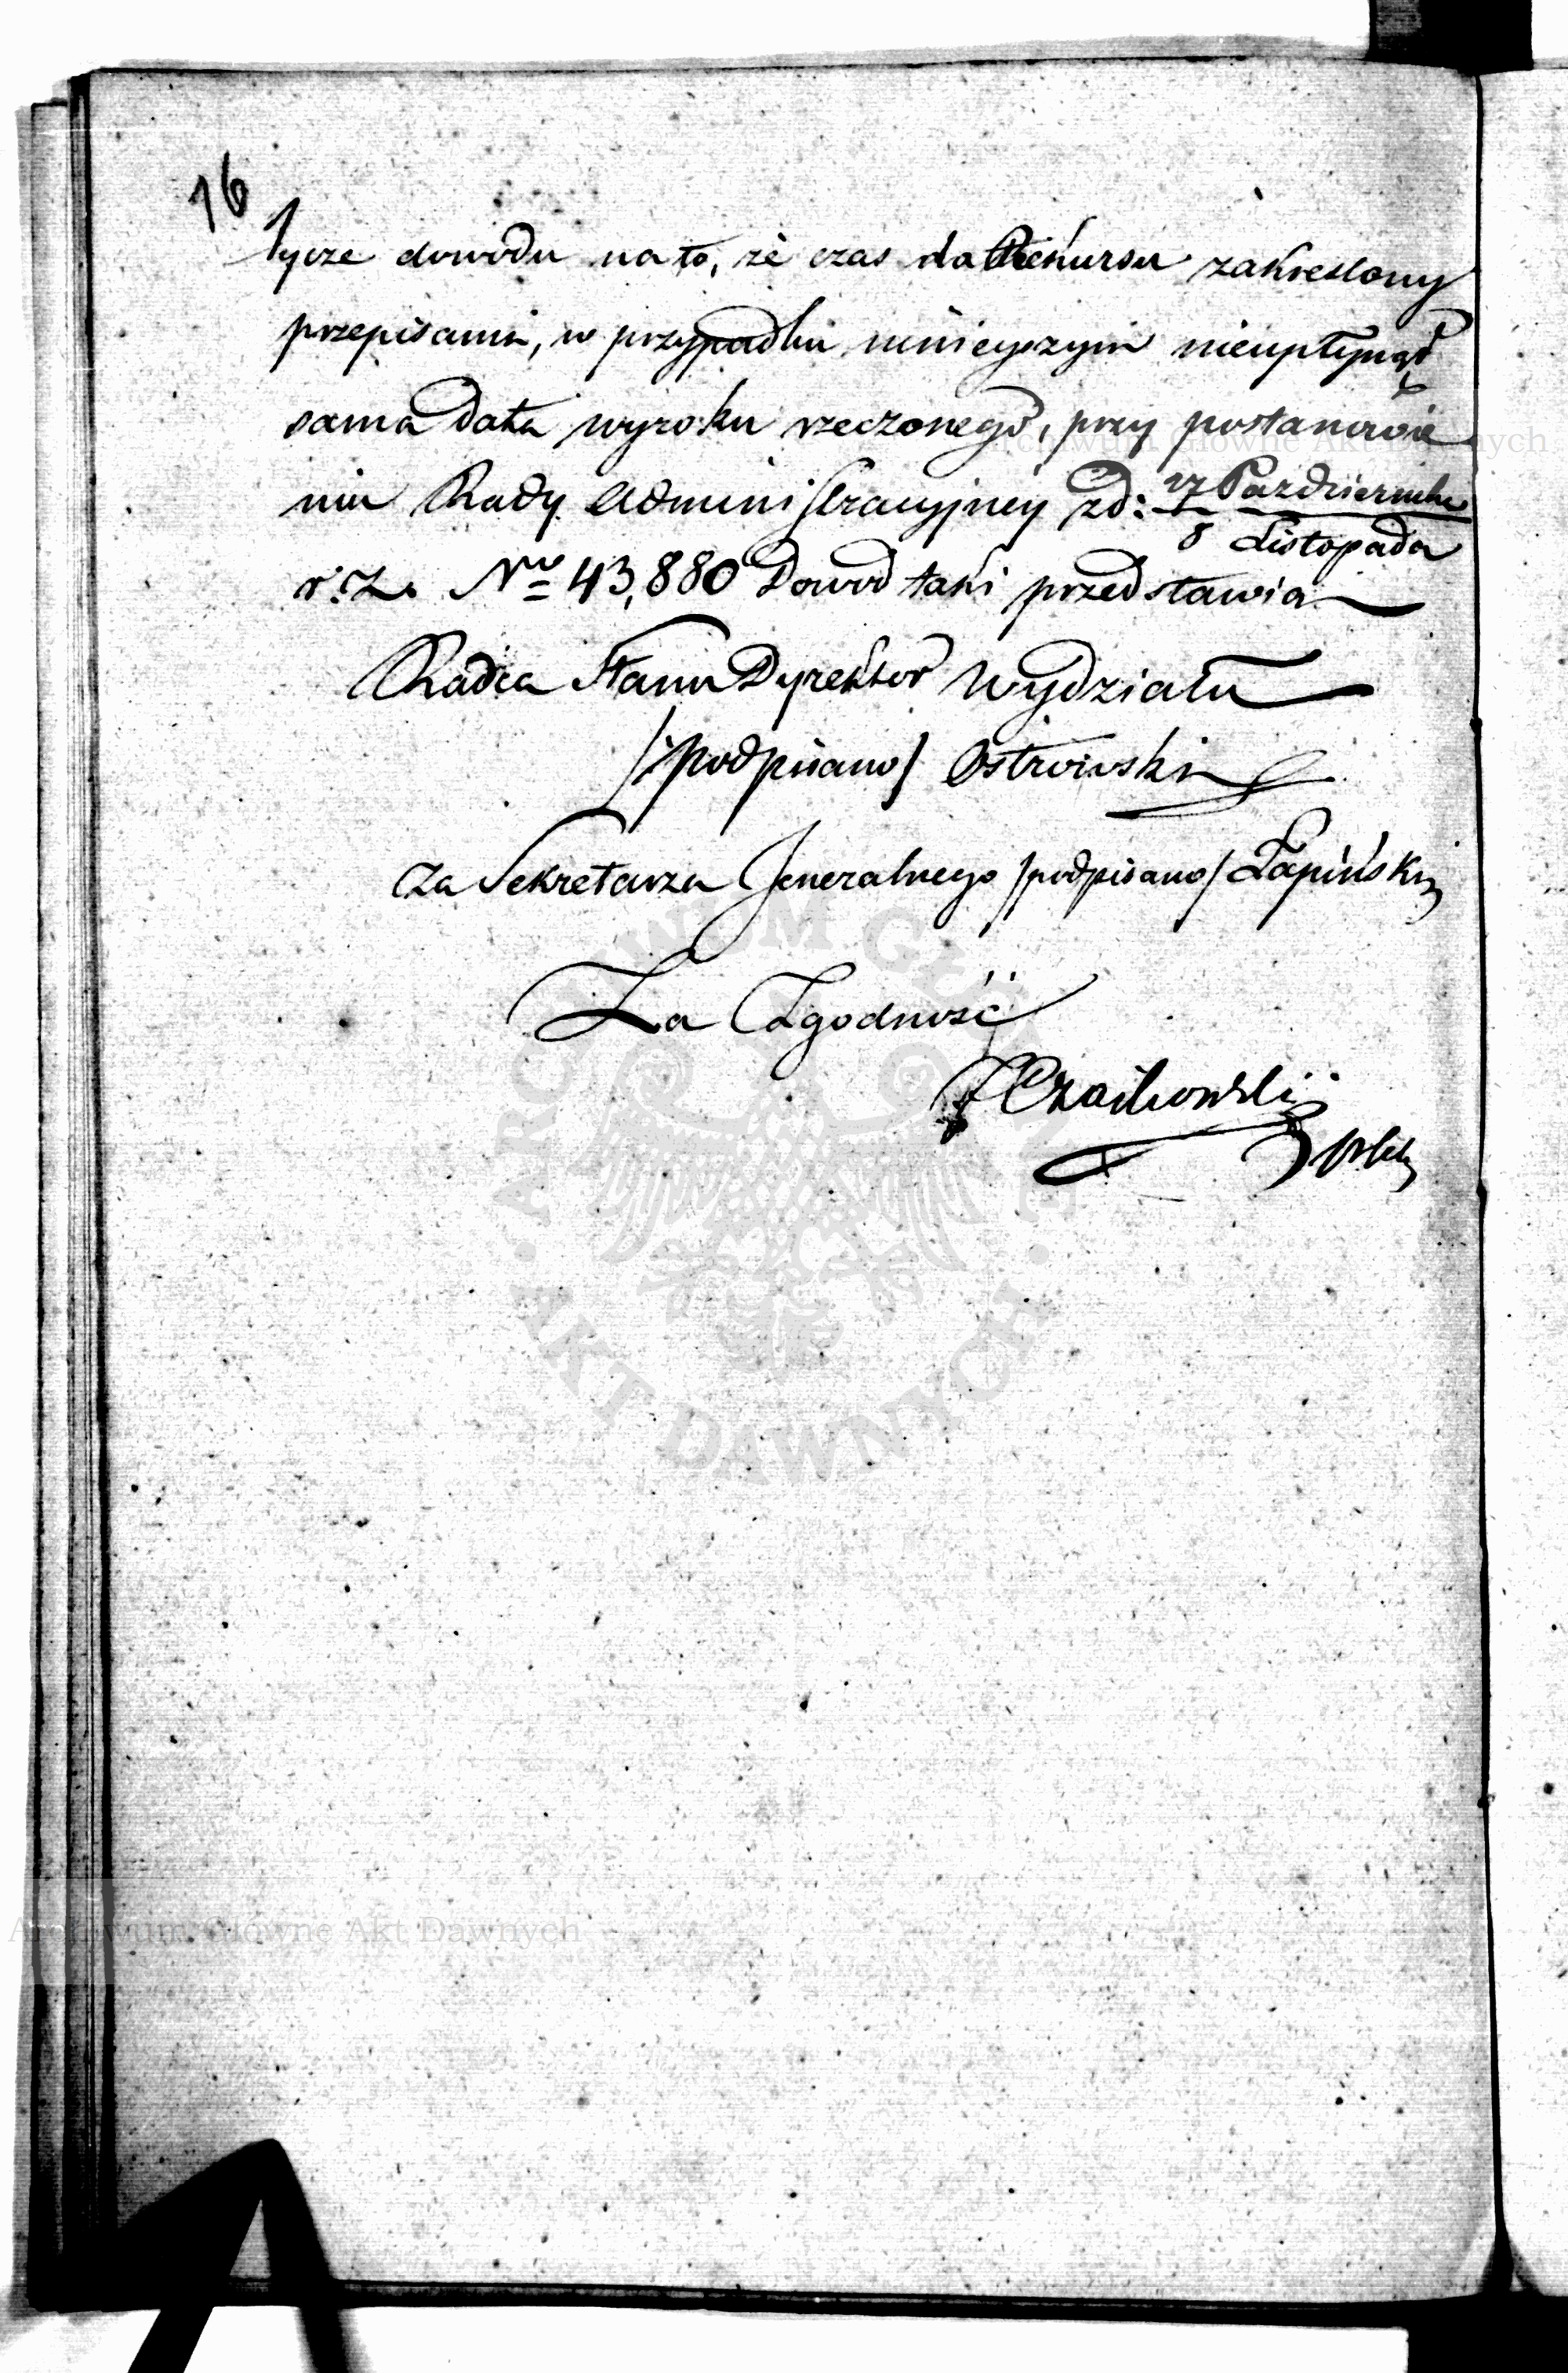 16
tycze dowodu na to, że czas do Rekursu zakreslony
przepisami, w przypadku ninieyszym nieupłynął
sama data wyroku rzeczonego, przy postanowie
niu Rady Administracyjney z d: 27 Października
8 Listopada
r. z. No 43,880 Dowod taki przedstawia
Radca Stanu Dyrektor Wydziału
/podpisano/ Ostrowski
Za Sekretarza Jeneralnego /podpisano/ Łapiński
Za Zgodność
Czaikowski
Archiwum Główne Akt Dawnych
ARCHIWUM GŁÓWNE
AKT DAWNYCH
Archiwum Główne Akt Dawnych